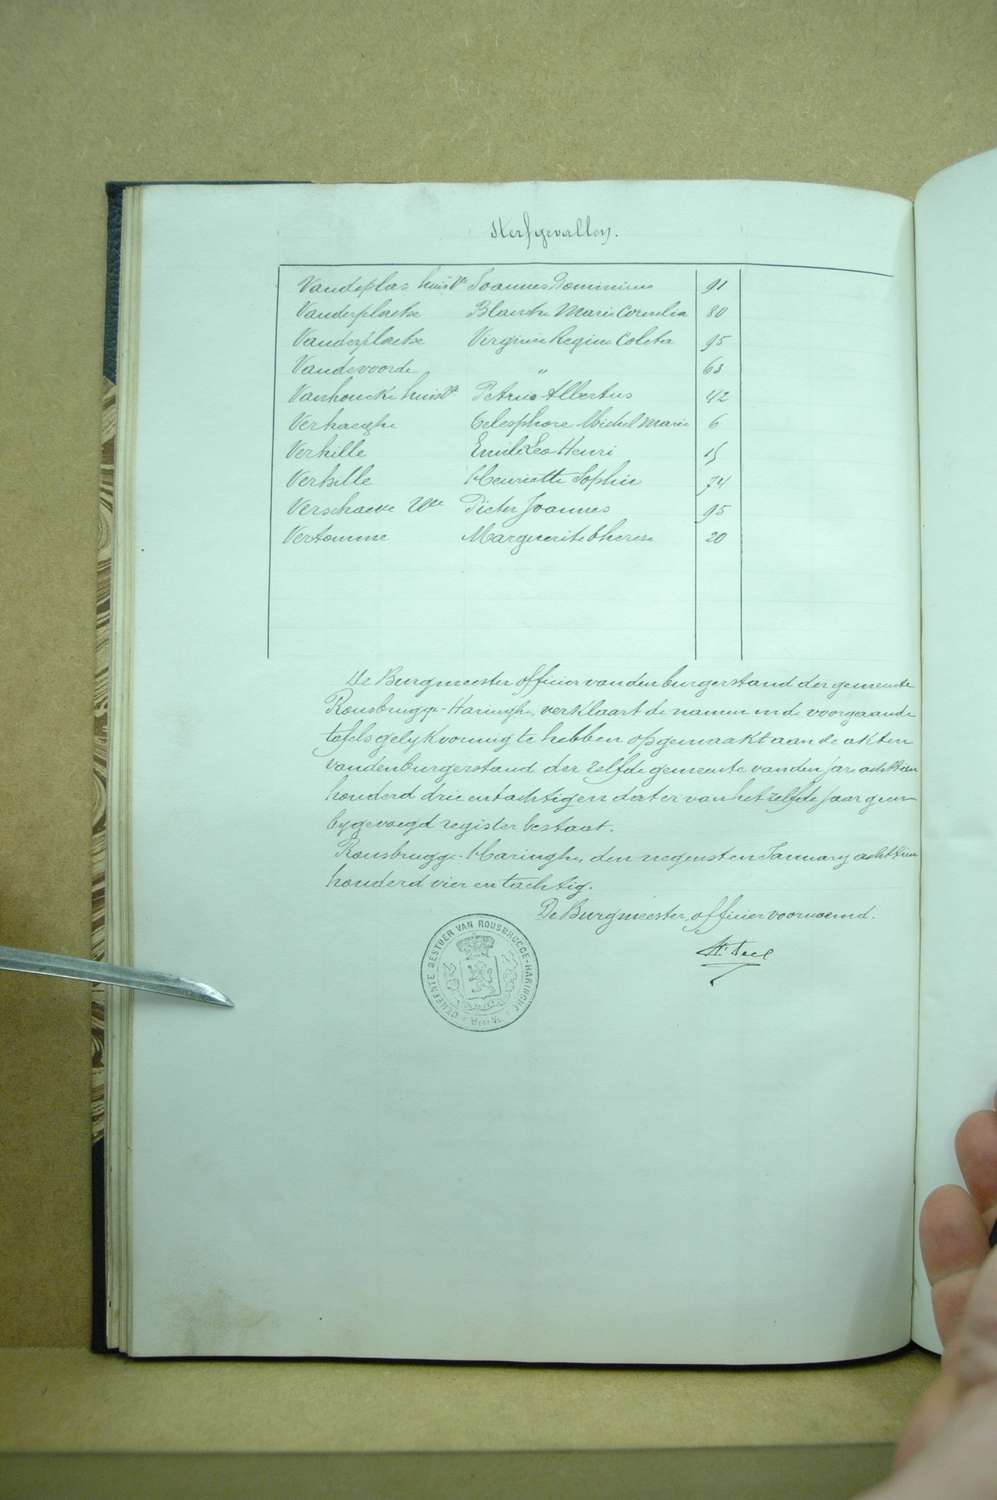 Sterfgevallen.
Vandeplas huisv. Joannes Dominicus 91
Vanderplaetse Blanche Marie Cornelia 80
Vanderplaetse Virginie Regine Coleta 95
Vandevoorde " 63
Vanhoucke huisv. Petrus Albertus 42
Verhaeghe Telesphore Michel Marie 6
Verhille Emile Leo Henri 15
Verhille Henriette Sophie 74
Verschaeve We Pieter Joannes 95
Vertomme Marguerite Therese 20
De Burgmeester officier van den burgerstand der gemeente
Rousbrugge-Haringhe, verklaart de namen in de voorgaande
tafels gelykvormig te hebben opgemaakt aan de akten
van den burgerstand der zelfde gemeente van den jare achttien
honderd drie en tachtig en dat er van het zelfde jaar geen
bygevoegd register bestaat.
Rousbrugge-Haringhe, den negensten January achttien
honderd vier en tachtig.
De Burgmeester, officier voornoemd.
GEMEENTE BESTUER VAN ROUSBRUGGE-HARINGHE